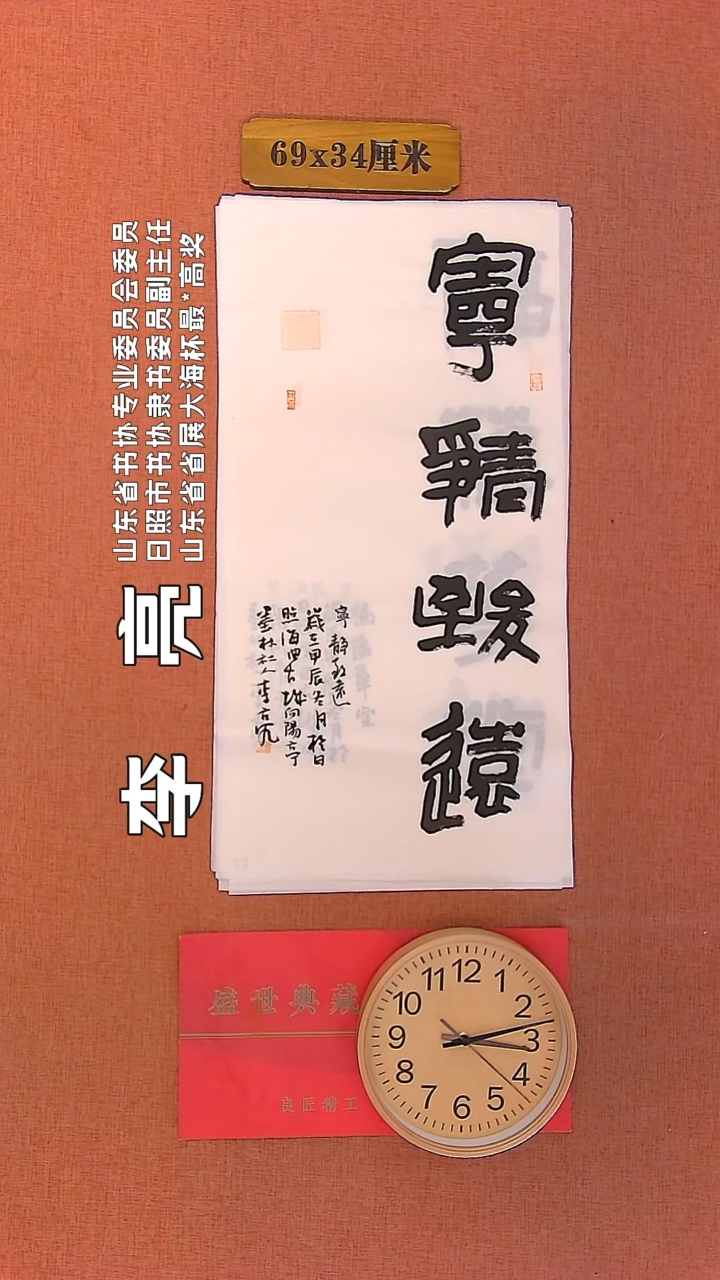 69x34厘米
山东省书协专业委员会委员
日照市书协隶书委员副主任
山东省省展大海杯最*高奖
李亮
寧靜致遠
寧靜致遠
歲在甲辰冬月於日
照
李古風
盛世典藏
良匠精工
12
1
2
3
4
5
6
7
8
9
10
11